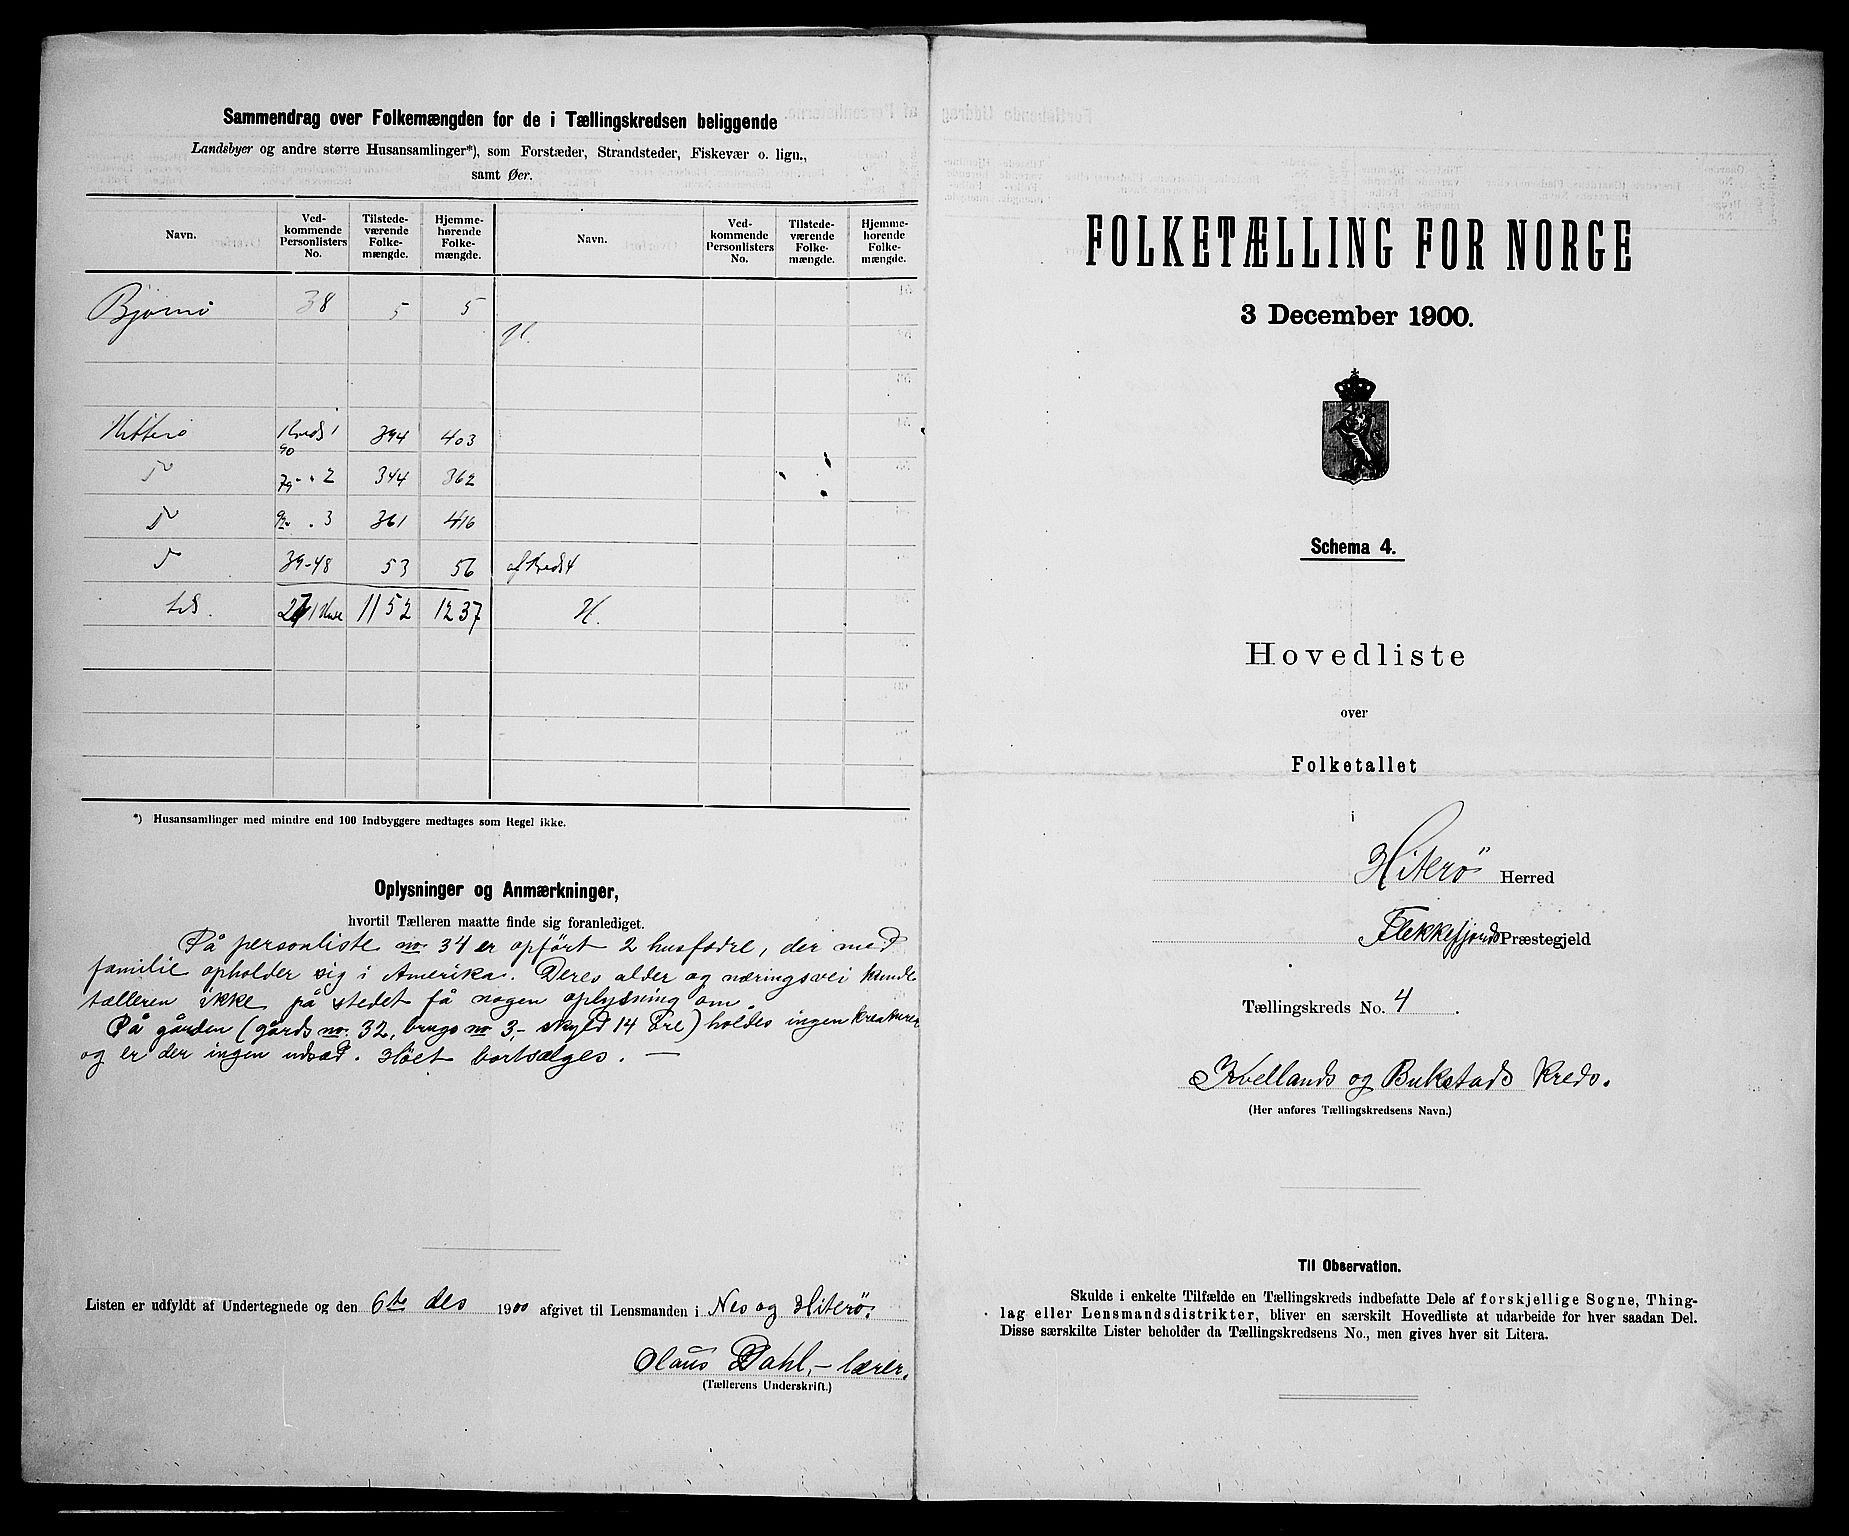 Sammendrag over Folkemængden for de i Tællingskredsen beliggende
Landsbyer og andre større Husansamlinger*), som Forstæder, Strandsteder, Fiskevær o. lign.,
samt Øer.
Navn. Ved-kommende Personlisters No. Tilstede-værende Folke-mængde. Hjemme-hørende Folke-mængde. Navn. Ved-kommende Personlisters No. Tilstede-værende Folke-mængde. Hjemme-hørende Folke-mængde.
Bjørnø 38 5 5
H.
Hitterø Kreds 1 90 394 403
D 79 " 2 344 362
D . 3 361 416
D 39-48 53 56 af Kreds 4
1152 1237 H.
*) Husansamlinger med mindre end 100 Indbyggere medtages som Regel ikke.
Oplysninger og Anmærkninger,
hvortil Tælleren maatte finde sig foranlediget.
På personliste no. 34 er opført 2 husfædre, der med
familie opholder sig i Amerika. Deres alder og næringsvei kunde
tælleren ikke på stedet få nogen oplysning om.
På gården (gårds no. 32, brugs no 3,- skyld 14 Øre) holdes ingen kreaturer
og er der ingen udsæd. Høet bortsælges. —
Listen er udfyldt af Undertegnede og den 6te des 1900 afgivet til Lensmanden i Nes og Hiterø.
Olaus Dahl, – lærer.
(Tællerens Underskrift.)
FOLKETÆLLING FOR NORGE
3 December 1900.
Schema 4.
Hovedliste
over
Folketallet
i
Hiterø Herred
Flekkefjords Præstegjeld
Tællingskreds No. 4.
Kvellands og Bukstads kreds.
(Her anføres Tællingskredsens Navn.)
Til Observation.
Skulde i enkelte Tilfælde en Tællingskreds indbefatte Dele af forskjellige Sogne, Thing-
lag eller Lensmandsdistrikter, bliver en særskilt Hovedliste at udarbeide for hver saadan Del.
Disse særskilte Lister beholder da Tællingskredsens No., men gives hver sit Litera.